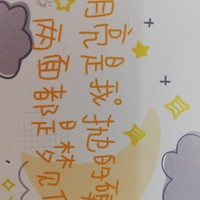 月亮是我抛的硬
两面都是梦见